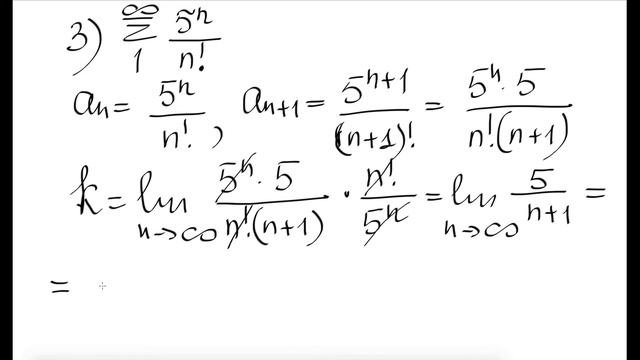 3) ∞ Σ 1 5^n / n!
a_n = 5^n / n! , a_{n+1} = 5^{n+1} / (n+1)! = 5^n · 5 / n!(n+1)
k = lim n→∞ 5^n · 5 / n!(n+1) · n! / 5^n = lim n→∞ 5 / n+1 =
=